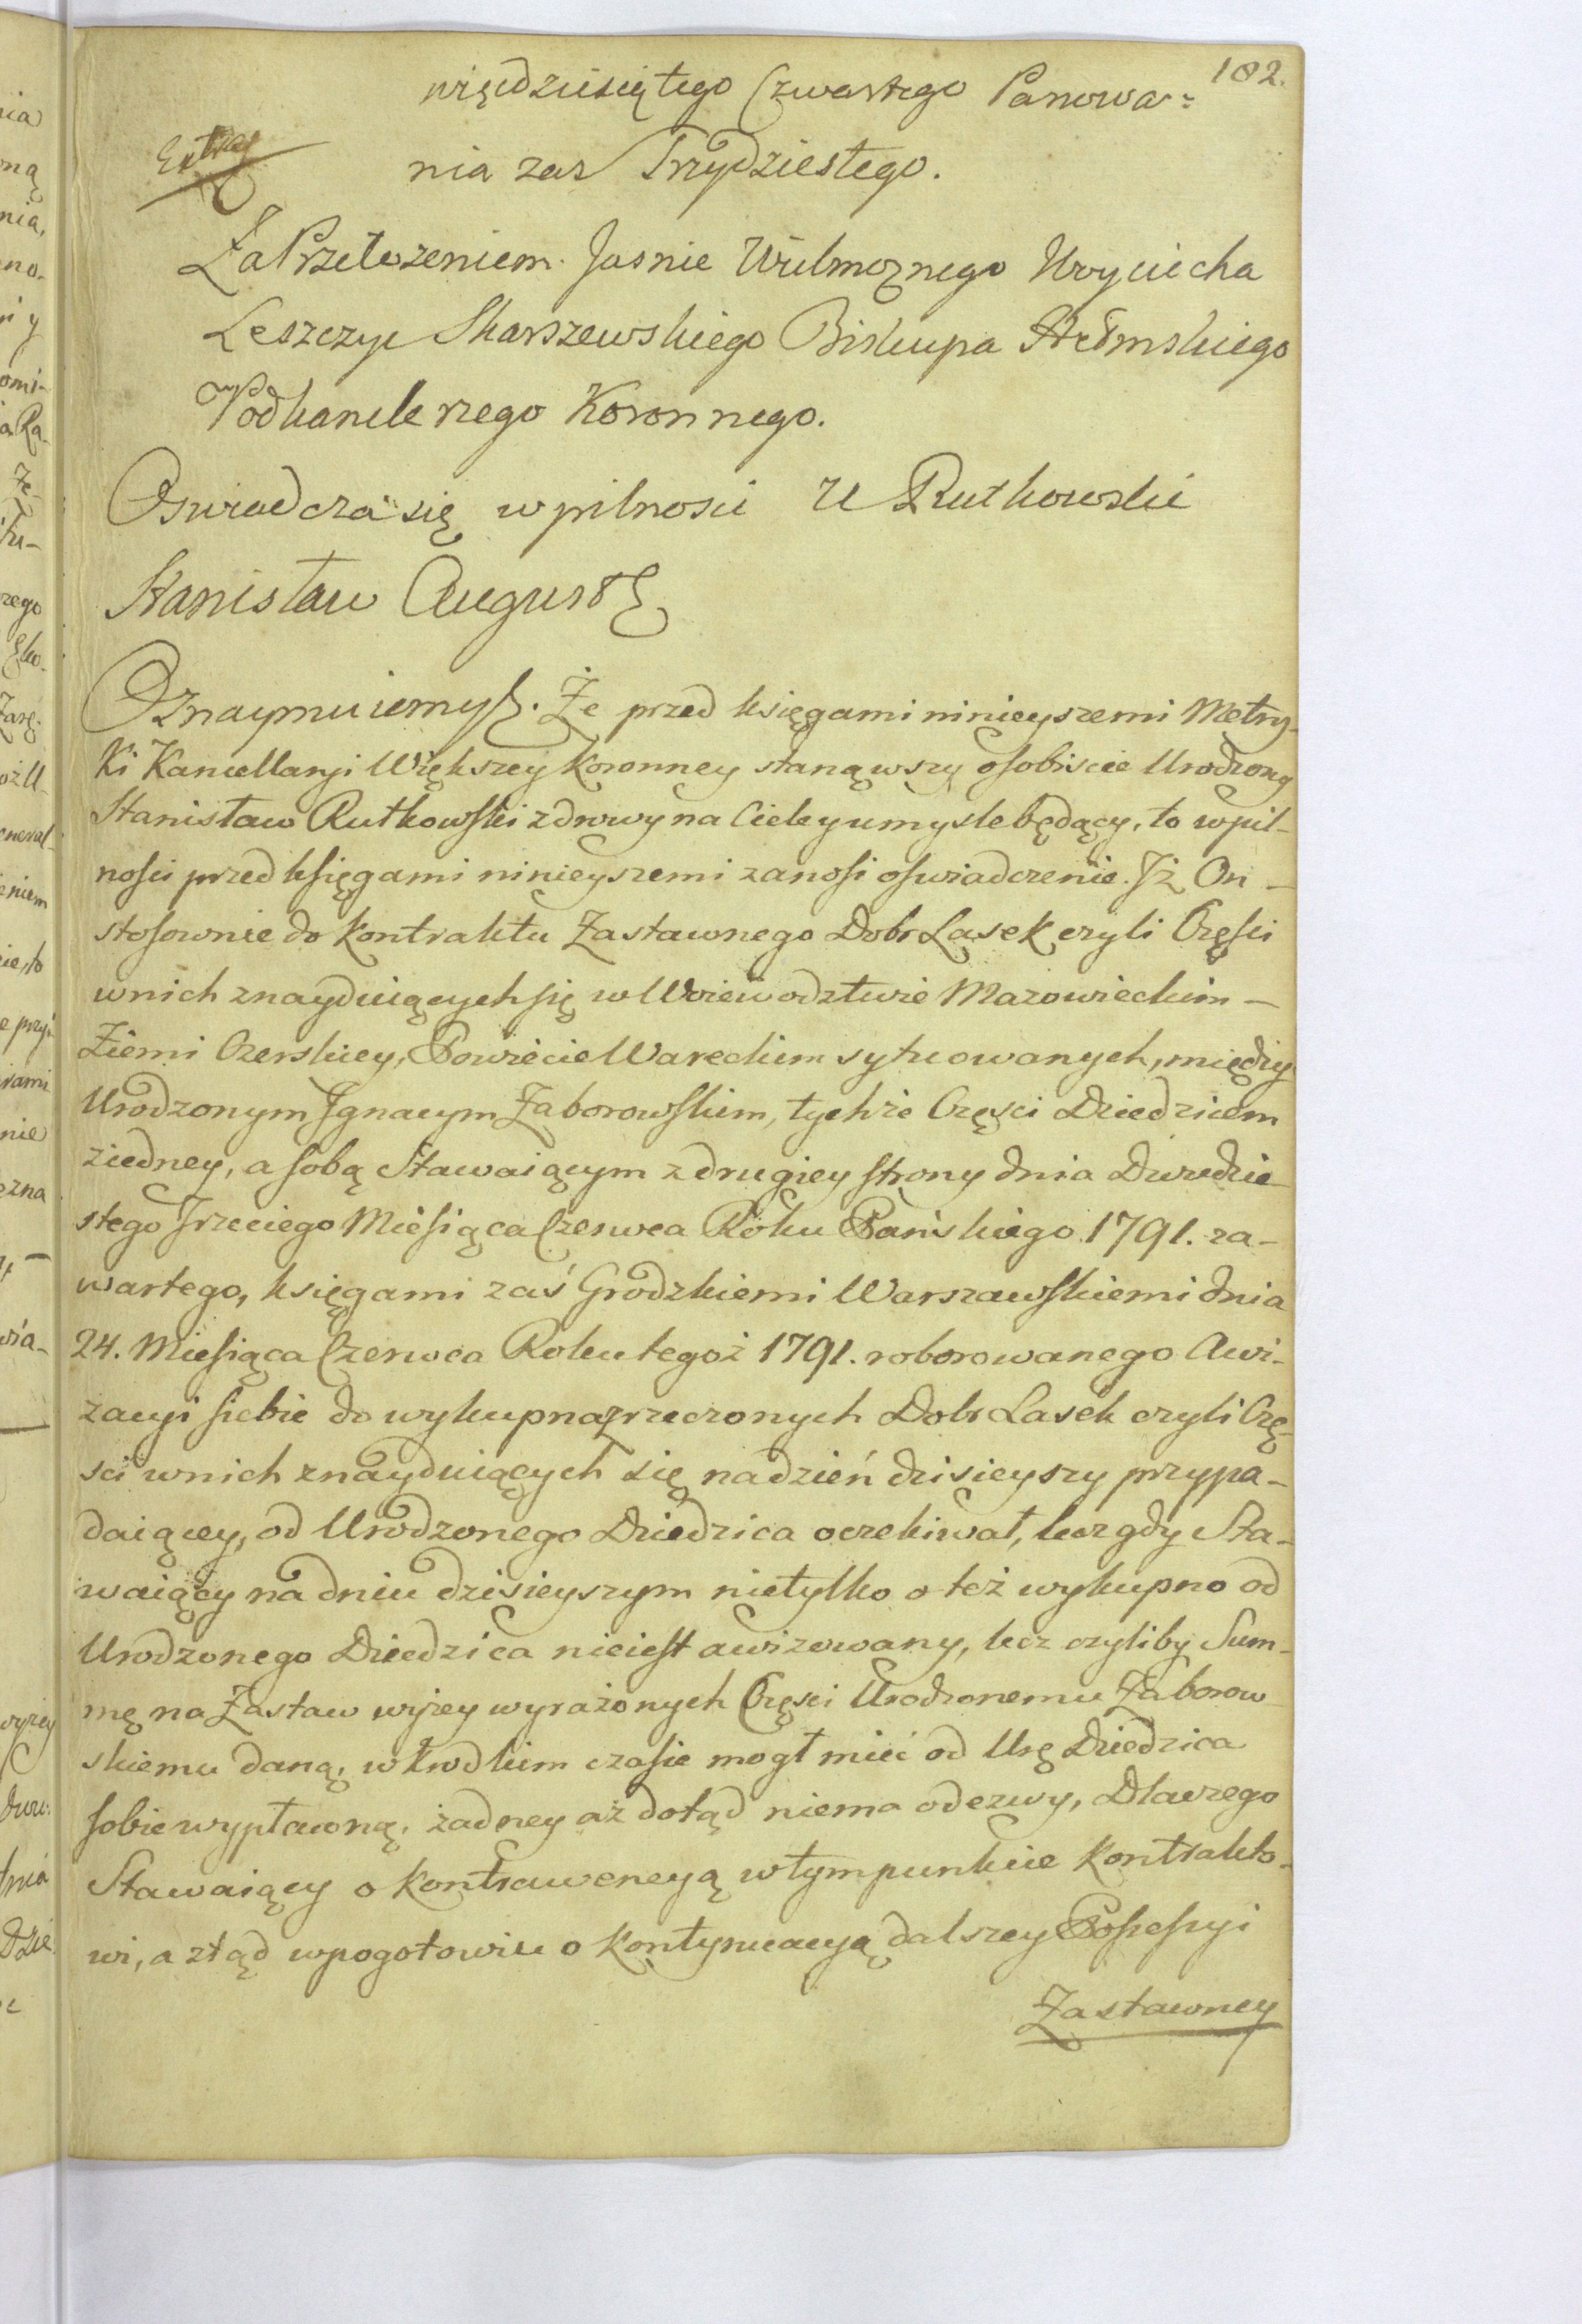 182.
więdziesiętego Czwartego Panowa=
Extrad
nia zas Trzydziestego.
Za Przełożeniem Jasnie Wielmoznego Woyciecha
Leszczyc Skarszewskiego Biskupa Hełmskiego
Podkanclerzego Koronnego.
Oswiadcza się w pilnosci U Rutkowski
Stanisław August
Oznaymuiemy. Że przed księgami ninieyszemi Metry-
ki Kancellaryi Większey Koronney stanąwszy osobiscie Urodzony
Stanisław Rutkowski zdrowy na Ciele y umysle będący, to w pil-
nosci przed księgami ninieyszemi zanosi oswiadczenie. Jż On -
stosownie do Kontraktu Zastawnego Dobr Lasek czyli Części
w nich znayduiących się w Woiewodztwie Mazowieckim -
Ziemi Czerskiey, Powiecie Wareckim sytuowanych, między
Urodzonym Jgnacym Zaborowskim, tychże Częsci Dziedzicem
z iedney, a sobą Stawaiącym z drugiey strony dnia Dwudzie-
stego Trzeciego Miesiąca Czerwca Roku Pańskiego 1791. za-
wartego, księgami zaś Grodzkiemi Warszawskiemi dnia
24. Miesiąca Czerwca Roku tegoż 1791. roborowanego Awi-
zacyi siebie do wykupna przeczonych Dobr Lasek czyli Czę-
sci w nich znayduiących się na dzień dzisieyszy przypa-
daiącey, od Urodzonego Dziedzica oczekiwał, lecz gdy Sta-
waiący na dniu dzisieyszym nietylko o też wykupno od
Urodzonego Dziedzica nieiest awizowany, lecz czyliby Sum-
mę na Zastaw wyżey wyrażonych Częsci Urodzonemu Zaborow
skiemu daną, w krodkim czasie mogł mieć od Urę Dziedzica
sobie wypłaconą, żadney aż dotąd niema odezwy, Dlaczego
Stawaiący o Kontrawencyą w tym punkcie Kontrakto-
wi, a ztąd w pogotowiu o Kontynuacyą dalszey Possessyi
Zastawney